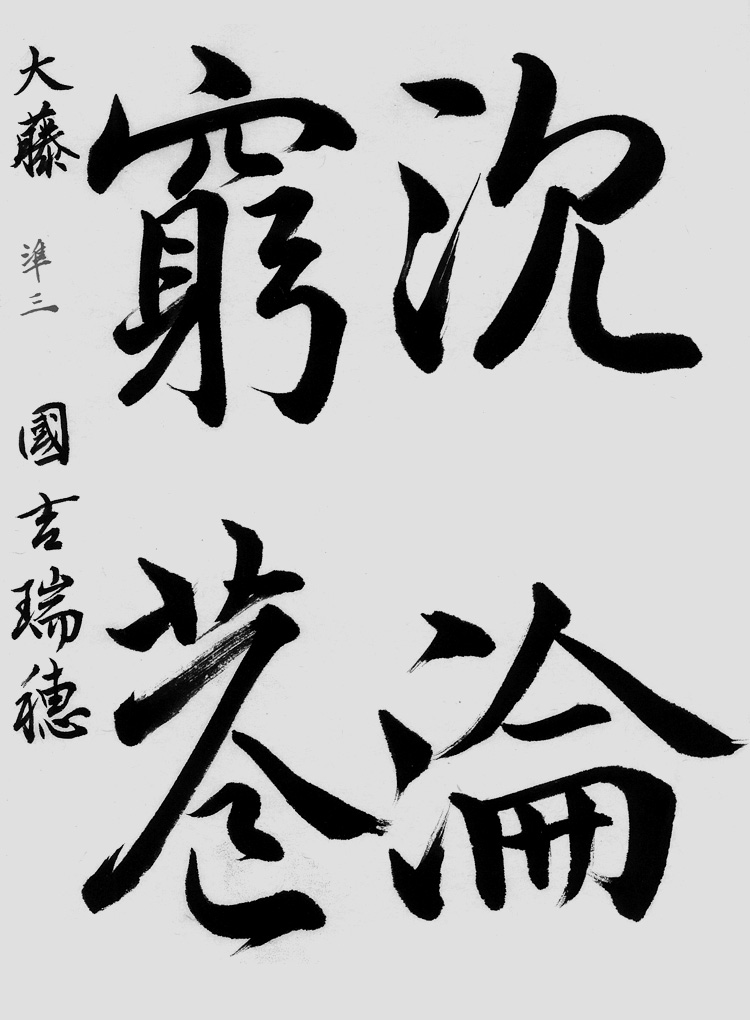 沈淪
窮巷
大藤 準三 國吉瑞穂